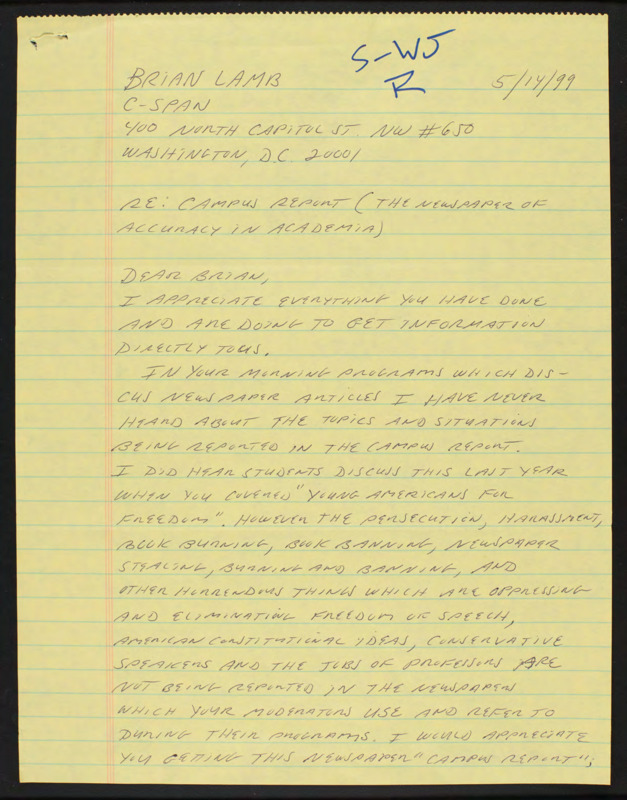 S-WJ
R
BRIAN LAMB 5/14/99
C-SPAN
400 NORTH CAPITOL ST. NW #650
WASHINGTON, D.C. 20001
RE: CAMPUS REPORT (THE NEWSPAPER OF
ACCURACY IN ACADEMIA)
DEAR BRIAN,
I APPRECIATE EVERYTHING YOU HAVE DONE
AND ARE DOING TO GET INFORMATION
DIRECTLY TO US.
IN YOUR MORNING PROGRAMS WHICH DIS-
CUS NEWSPAPER ARTICLES I HAVE NEVER
HEARD ABOUT THE TOPICS AND SITUATIONS
BEING REPORTED IN THE CAMPUS REPORT.
I DID HEAR STUDENTS DISCUSS THIS LAST YEAR
WHEN YOU COVERED "YOUNG AMERICANS FOR
FREEDOM". HOWEVER THE PERSECUTION, HARASSMENT,
BOOK BURNING, BOOK BANNING, NEWSPAPER
STEALING, BURNING AND BANNING, AND
OTHER HORRENDOUS THINGS WHICH ARE OPPRESSING
AND ELIMINATING FREEDOM OF SPEECH,
AMERICAN CONSTITUTIONAL IDEAS, CONSERVATIVE
SPEAKERS AND THE JOBS OF PROFESSORS ARE
NOT BEING REPORTED IN THE NEWSPAPERS
WHICH YOUR MODERATORS USE AND REFER TO
DURING THEIR PROGRAMS. I WOULD APPRECIATE
YOU GETTING THIS NEWSPAPER "CAMPUS REPORT";